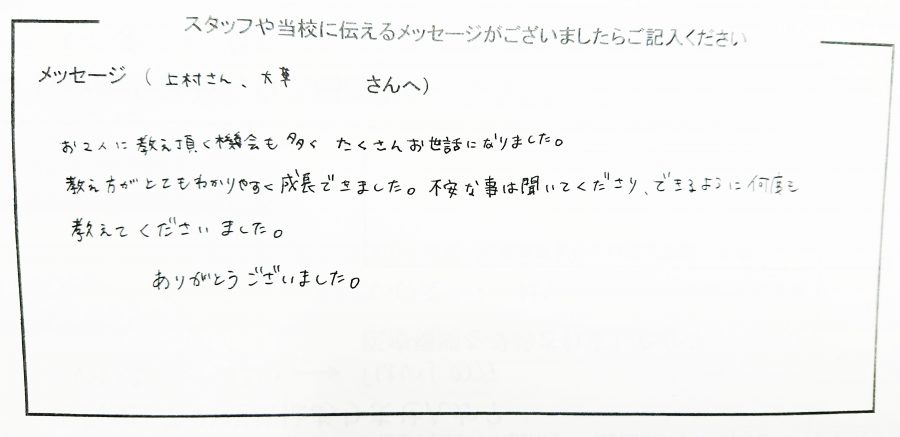 スタッフや当校に伝えるメッセージがございましたらご記入ください
メッセージ ( 上村さん、大草 さんへ)
お2人に教え頂く機会も多く たくさんお世話になりました。
教え方がとてもわかりやすく成長できました。不安な事は聞いてくださり、できるように何度も
教えてくださいました。
ありがとうございました。